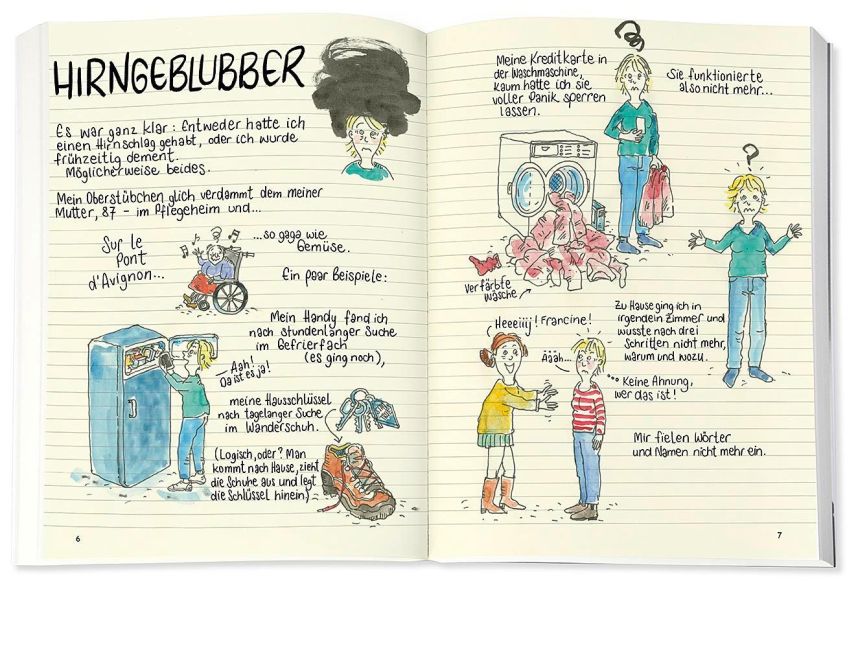 HIRNGEBLUBBER
Es war ganz klar: Entweder hatte ich
einen Hirnschlag gehabt, oder ich wurde
frühzeitig dement.
Möglicherweise beides.
Mein Oberstübchen glich verdammt dem meiner
Mutter, 87 – im Pflegeheim und...
Sur le
Pont
d'Avignon...
...so gaga wie
Gemüse.
Ein paar Beispiele:
Mein Handy fand ich
nach stundenlanger Suche
im Gefrierfach
(es ging noch),
Aah!
Da ist es ja!
meine Hausschlüssel
nach tagelanger Suche
im Wanderschuh.
(Logisch, oder? Man
kommt nach Hause, zieht
die Schuhe aus und legt
die Schlüssel hinein)
6
Meine Kreditkarte in
der Waschmaschine,
kaum hatte ich sie
voller Panik sperren
lassen.
?
Sie funktionierte
also nicht mehr...
verfärbte
Wäsche
?
Zu Hause ging ich in
irgendein Zimmer und
wusste nach drei
Schritten nicht mehr,
warum und wozu.
Heeeiiij! Francine!
Äääh...
...Keine Ahnung,
wer das ist!
Mir fielen Wörter
und Namen nicht mehr ein.
7